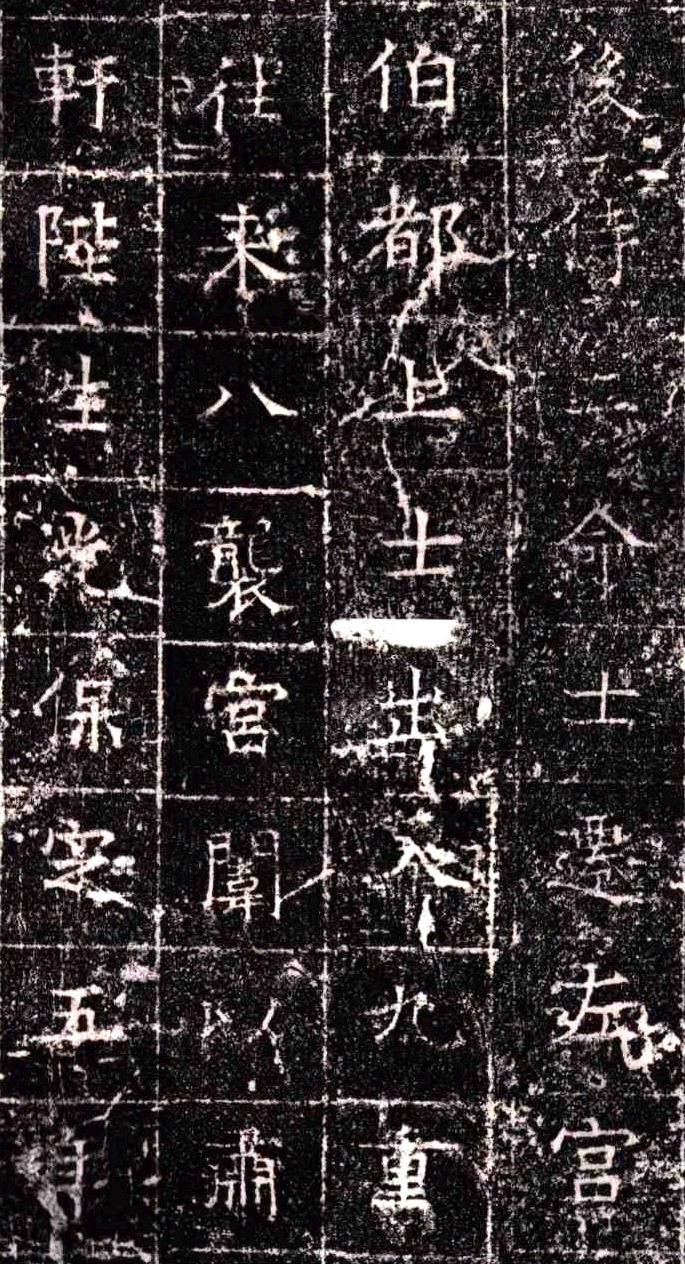 後侍二命士遷左宮
伯都上士出入九重
往来八襲宮闈以肅
軒陛生光保定五年